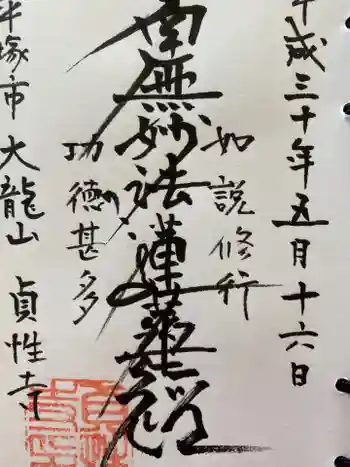 平成三十年五月十六日
如説修行
南無妙法蓮華経
功徳甚多
平塚市 大龍山 貞性寺